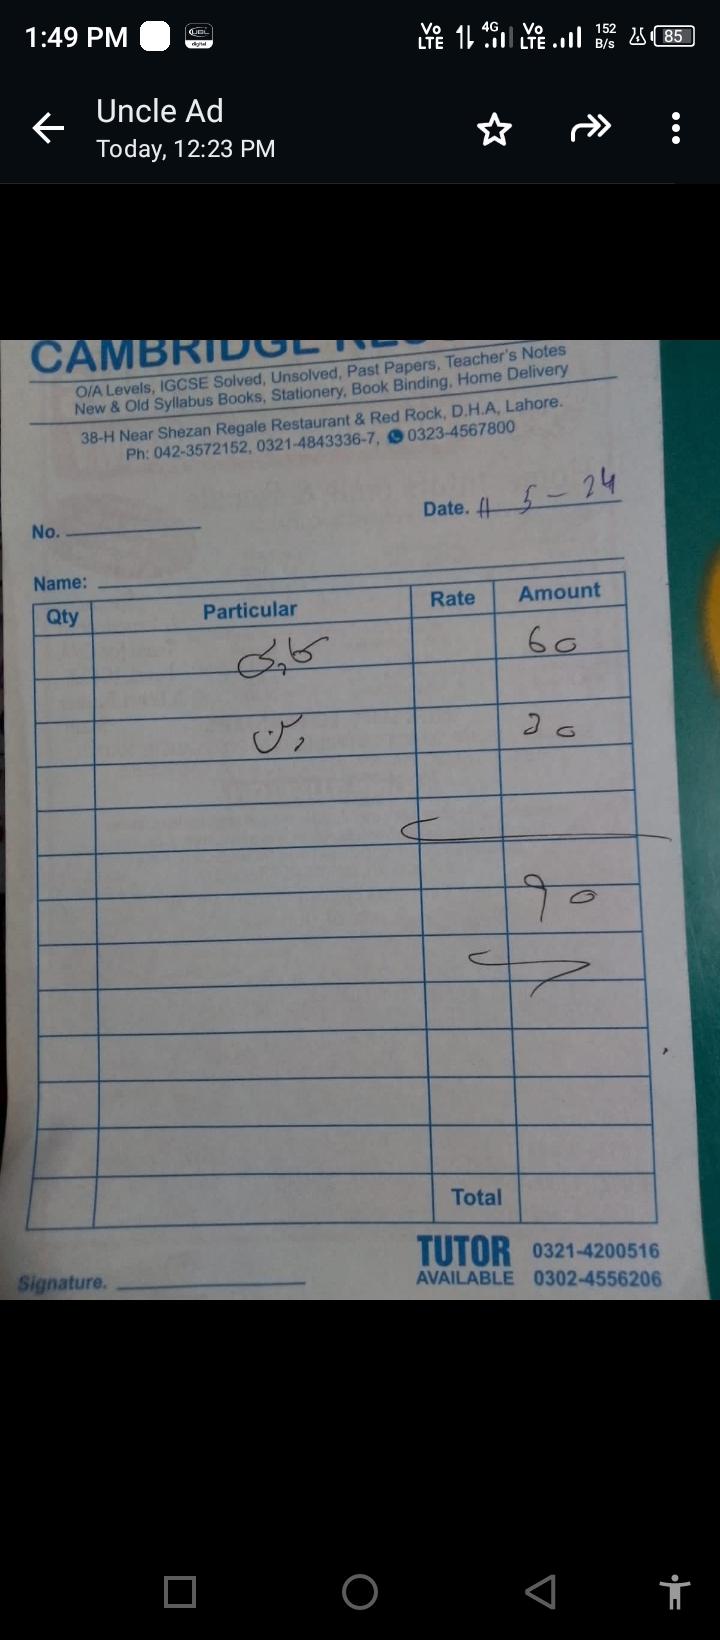 1:49 PM UBL digital Vo LTE 4G Vo LTE 152 B/s 85
Uncle Ad
Today, 12:23 PM
CAMBRIDGE
O/A Levels, IGCSE Solved, Unsolved, Past Papers, Teacher's Notes
New & Old Syllabus Books, Stationery, Book Binding, Home Delivery
38-H Near Shezan Regale Restaurant & Red Rock, D.H.A, Lahore.
Ph: 042-3572152, 0321-4843336-7, 0323-4567800
No. Date. 5-24
Name:
Qty Particular Rate Amount
60
30
90
Total
TUTOR 0321-4200516
AVAILABLE 0302-4556206
Signature.